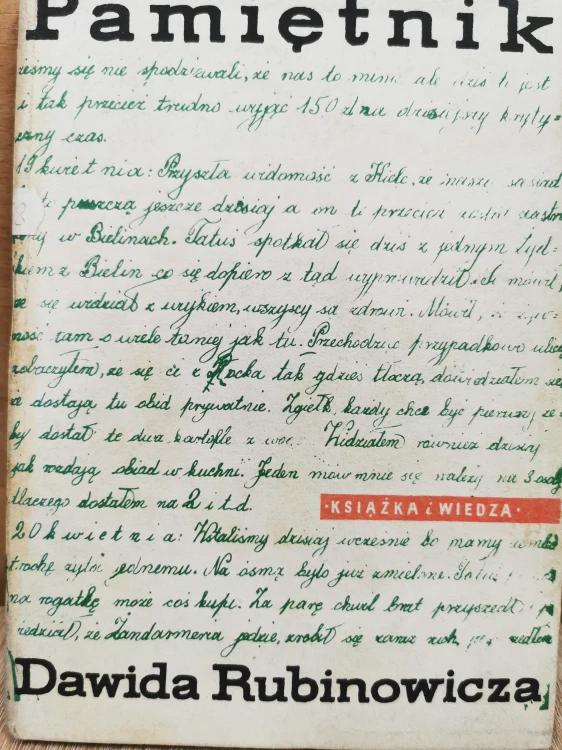 Pamiętnik
się nie spodziewali, że nas to minie ale dziś jest
i tak przecież trudno wyjąć 150 zł na dzisiejszy kryty=
czny czas.
19 kwietnia: Przyszła widomość z Kielc, że
puszczą jeszcze dzisiaj a on przecież
w Bielinach. Tatuś spotkał się dziś z jednym
z Bielin co się dopiero z tąd
się widział z wujkiem, wszyscy są zdrowi. Mówił,
tam o wiele taniej jak tu. Przechodząc przypadkowo
zobaczyłem, że się ci z Płocka tak gdzieś tłoczą, dowiedziałem
dostają tu obiad prywatnie. Zgiełk, każdy chce być pierwszy
by dostał te dwa kartofle z Widziałem również dzisiaj
jak rozdają obiad w kuchni. Jeden mówi mnie się należy na 3
dlaczego dostałem na 2 i t d.
·KSIĄŻKA i WIEDZA·
20 kwietnia: Wstaliśmy dzisiaj wcześnie bo mamy
trochę żyta jednemu. Na ósmą było już zmielone.
na rogatkę może coś kupi. Za parę chwil brat przyszedł
że żandarmeria jedzie, zrobił się zaraz ruch,
Dawida Rubinowicza